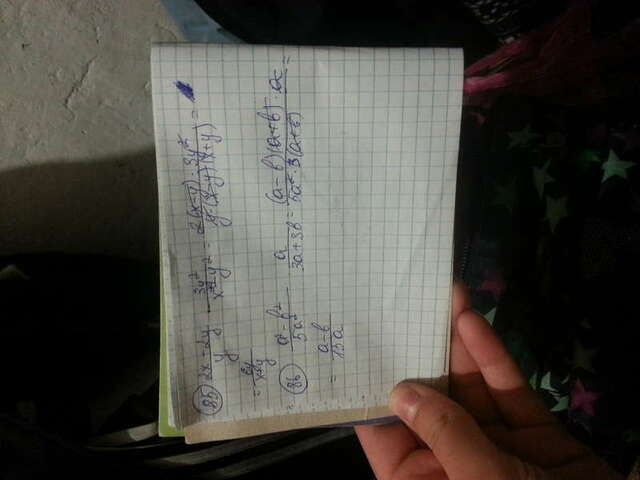 85) (2x-2y)/y · 3y²/(x²-y²) = 2(x-y)·3y²/(y·(x-y)(x+y)) =
= 6y/(x+y)
86) (a²-b²)/5a² · a/(3a+3b) = (a-b)(a+b)·a/(5a²·3(a+b)) =
= (a-b)/15a